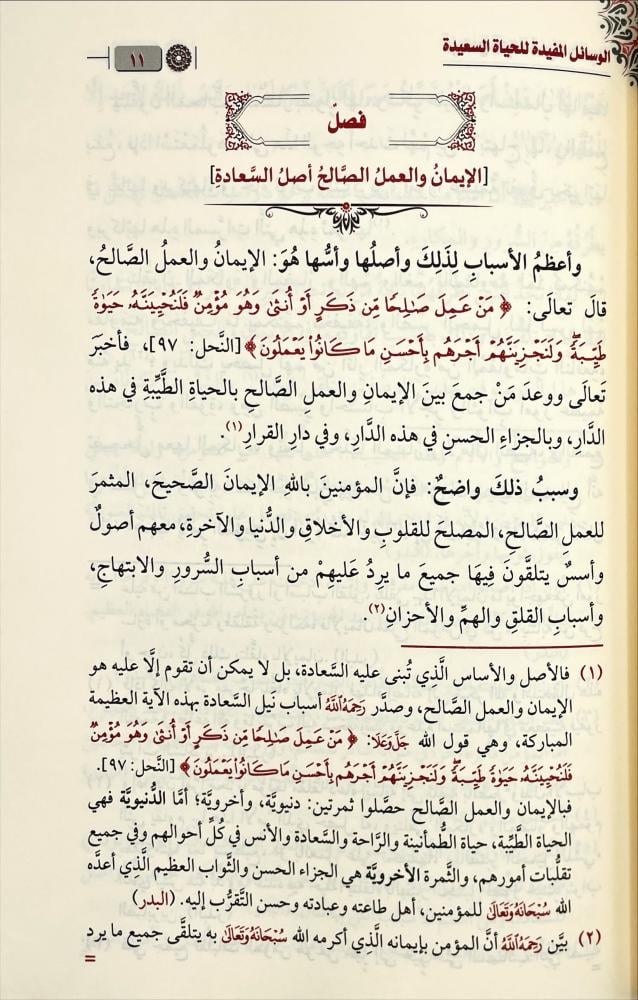 الوسائل المفيدة للحياة السعيدة
١١
فصلٌ
[الإيمانُ والعملُ الصَّالحُ أصلُ السَّعادةِ]
وأعظمُ الأسبابِ لِذَلِكَ وأصلُها وأسُّها هُوَ: الإيمانُ والعملُ الصَّالحُ،
قالَ تعالَى: ﴿ مَنْ عَمِلَ صَٰلِحًا مِّن ذَكَرٍ أَوْ أُنثَىٰ وَهُوَ مُؤْمِنٌ فَلَنُحْيِيَنَّهُۥ حَيَوٰةً
طَيِّبَةً ۖ وَلَنَجْزِيَنَّهُمْ أَجْرَهُم بِأَحْسَنِ مَا كَانُوا۟ يَعْمَلُونَ ﴾ [النَّحل: ٩٧]، فأخبَرَ
تَعالَى ووعدَ مَنْ جمعَ بينَ الإيمانِ والعملِ الصَّالحِ بالحياةِ الطَّيِّبةِ في هذه
الدَّارِ، وبالجزاءِ الحسنِ في هذه الدَّارِ، وفي دارِ القرارِ(١).
وسببُ ذلكَ واضحٌ: فإنَّ المؤمنينَ باللهِ الإيمانَ الصَّحيحَ، المثمرَ
للعملِ الصَّالحِ، المصلحَ للقلوبِ والأخلاقِ والدُّنيا والآخرةِ، معهم أصولٌ
وأسسٌ يتلقَّونَ فِيهَا جميعَ ما يرِدُ عَليهِمْ من أسبابِ السُّرورِ والابتهاجِ،
وأسبابِ القلقِ والهمِّ والأحزانِ(٢).
(١) فالأصل والأساس الَّذي تُبنى عليه السَّعادة، بل لا يمكن أن تقوم إلَّا عليه هو
الإيمان والعمل الصَّالح، وصدَّر رَحِمَهُ ٱللَّهُ أسباب نَيل السَّعادة بهذه الآية العظيمة
المباركة، وهي قول الله جَلَّ وَعَلَا: ﴿ مَنْ عَمِلَ صَٰلِحًا مِّن ذَكَرٍ أَوْ أُنثَىٰ وَهُوَ مُؤْمِنٌ
فَلَنُحْيِيَنَّهُۥ حَيَوٰةً طَيِّبَةً ۖ وَلَنَجْزِيَنَّهُمْ أَجْرَهُم بِأَحْسَنِ مَا كَانُوا۟ يَعْمَلُونَ ﴾ [النَّحل: ٩٧].
فبالإيمان والعمل الصَّالح حصَّلوا ثمرتين: دنيويَّة، وأخرويَّة؛ أمَّا الدُّنيويَّة فهي
الحياة الطَّيِّبة، حياة الطُّمأنينة والرَّاحة والسَّعادة والأنس في كُلِّ أحوالهم وفي جميع
تقلُّبات أمورهم، والثَّمرة الأخرويَّة هي الجزاء الحسن والثَّواب العظيم الَّذي أعدَّه
الله سُبْحَانَهُ وَتَعَالَىٰ للمؤمنين، أهل طاعته وعبادته وحسن التَّقرُّب إليه. (البدر)
(٢) بيَّن رَحِمَهُ ٱللَّهُ أنَّ المؤمن بإيمانه الَّذي أكرمه الله سُبْحَانَهُ وَتَعَالَىٰ به يتلقَّى جميع ما يرد
=